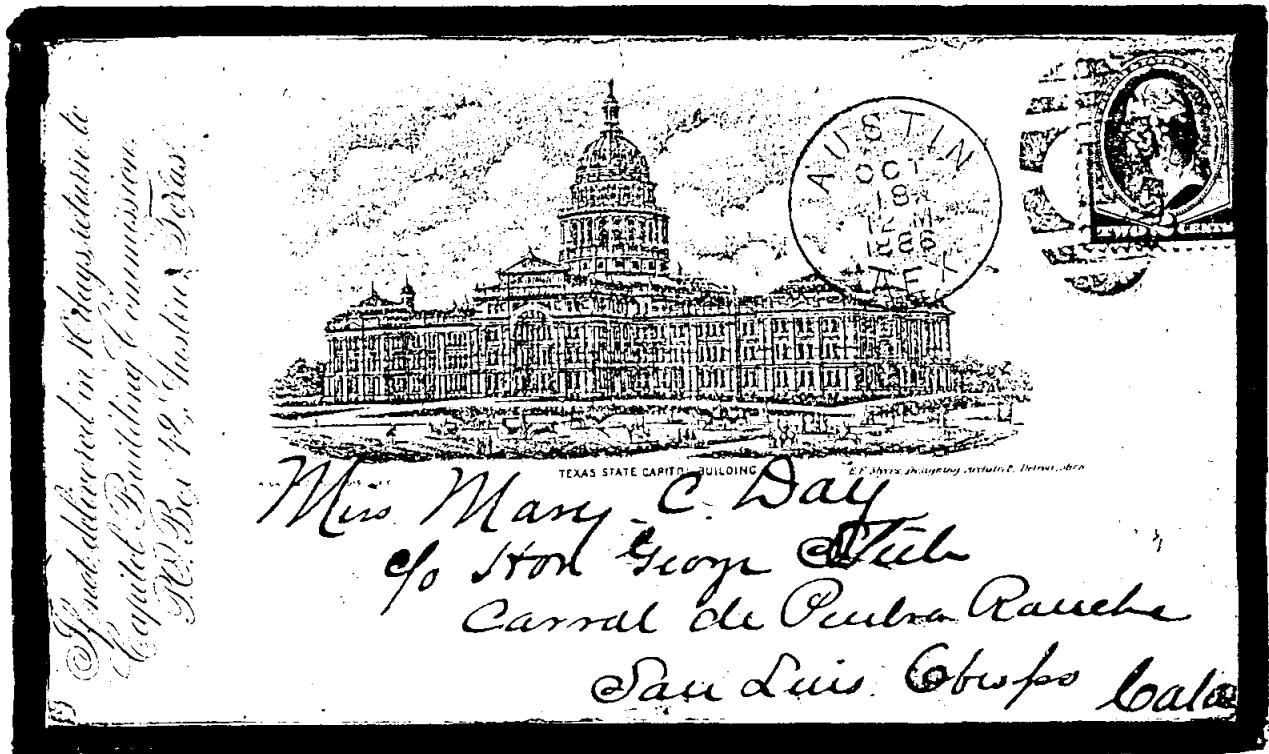 If not delivered in 10 days, return to
Capitol Building Commission.
P.O. Box 42, Austin, Texas.
AUSTIN
OCT
18
12 M
86
TEX
TWO 2 CENTS
TEXAS STATE CAPITOL BUILDING
E.E. Myers, Designing Architect, Detroit, Mich
Miss Mary C. Day
c/o Hon George Steele
Carral de Peidra Ranche
San Luis Obispo
Cala